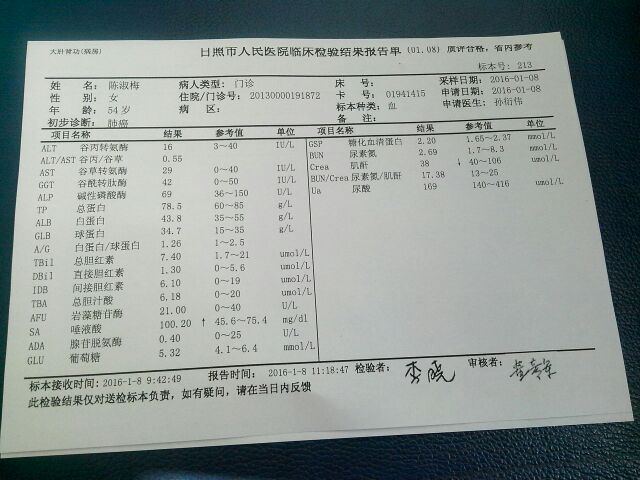 大肝肾功(病房)
日照市人民医院临床检验结果报告单 (01.08) 质评合格，省内参考
标本号: 213
姓 名: 陈淑梅 病人类型: 门诊 床 号: 采样日期: 2016-01-08
性 别: 女 住院/门诊号: 20130000191872 卡 号: 01941415 申请日期: 2016-01-08
年 龄: 54岁 病 区: 标本种类: 血 申请医生: 孙衍伟
初步诊断: 肺癌 备 注:
项目名称 结果 参考值 单位 项目名称 结果 参考值 单位
ALT 谷丙转氨酶 16 3～40 IU/L GSP 糖化血清蛋白 2.20 1.65～2.37 mmol/L
ALT/AST 谷丙/谷草 0.55 BUN 尿素氮 2.69 1.7～8.3 mmol/L
AST 谷草转氨酶 29 0～40 IU/L Crea 肌酐 38 ↓ 40～106 umol/L
GGT 谷酰转肽酶 42 0～50 IU/L BUN/Crea 尿素氮/肌酐 17.38 13～25
ALP 碱性磷酸酶 69 36～150 U/L Ua 尿酸 169 140～416 umol/L
TP 总蛋白 78.5 60～85 g/L
ALB 白蛋白 43.8 35～55 g/L
GLB 球蛋白 34.7 15～35 g/L
A/G 白蛋白/球蛋白 1.26 1～2.5
TBil 总胆红素 7.40 1.7～21 umol/L
DBil 直接胆红素 1.30 0～5.6 umol/L
IDB 间接胆红素 6.10 0～19 umol/L
TBA 总胆汁酸 6.18 0～20 umol/L
AFU 岩藻糖苷酶 21.00 0～40 U/L
SA 唾液酸 100.20 ↑ 45.6～75.4 mg/dl
ADA 腺苷脱氨酶 0.40 0～25 U/L
GLU 葡萄糖 5.32 4.1～6.4 mmol/L
标本接收时间: 2016-1-8 9:42:49 报告时间: 2016-1-8 11:18:47 检验者: 李晓 审核者:
此检验结果仅对送检标本负责，如有疑问，请在当日内反馈